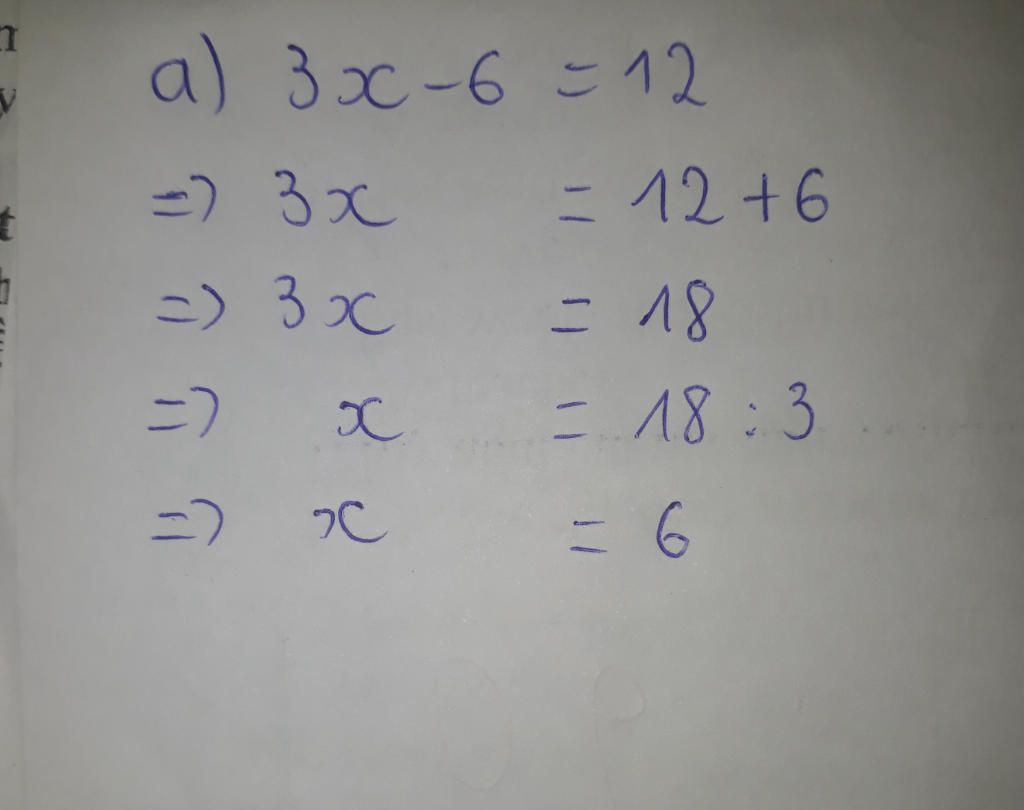 a) 3x - 6 = 12
=> 3x = 12 + 6
=> 3x = 18
=> x = 18 : 3
=> x = 6